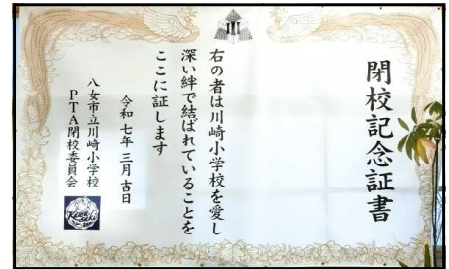 閉校記念証書
右の者は川崎小学校を愛し
深い絆で結ばれていることを
ここに証します
令和七年三月吉日
八女市立川崎小学校
PTA閉校委員会